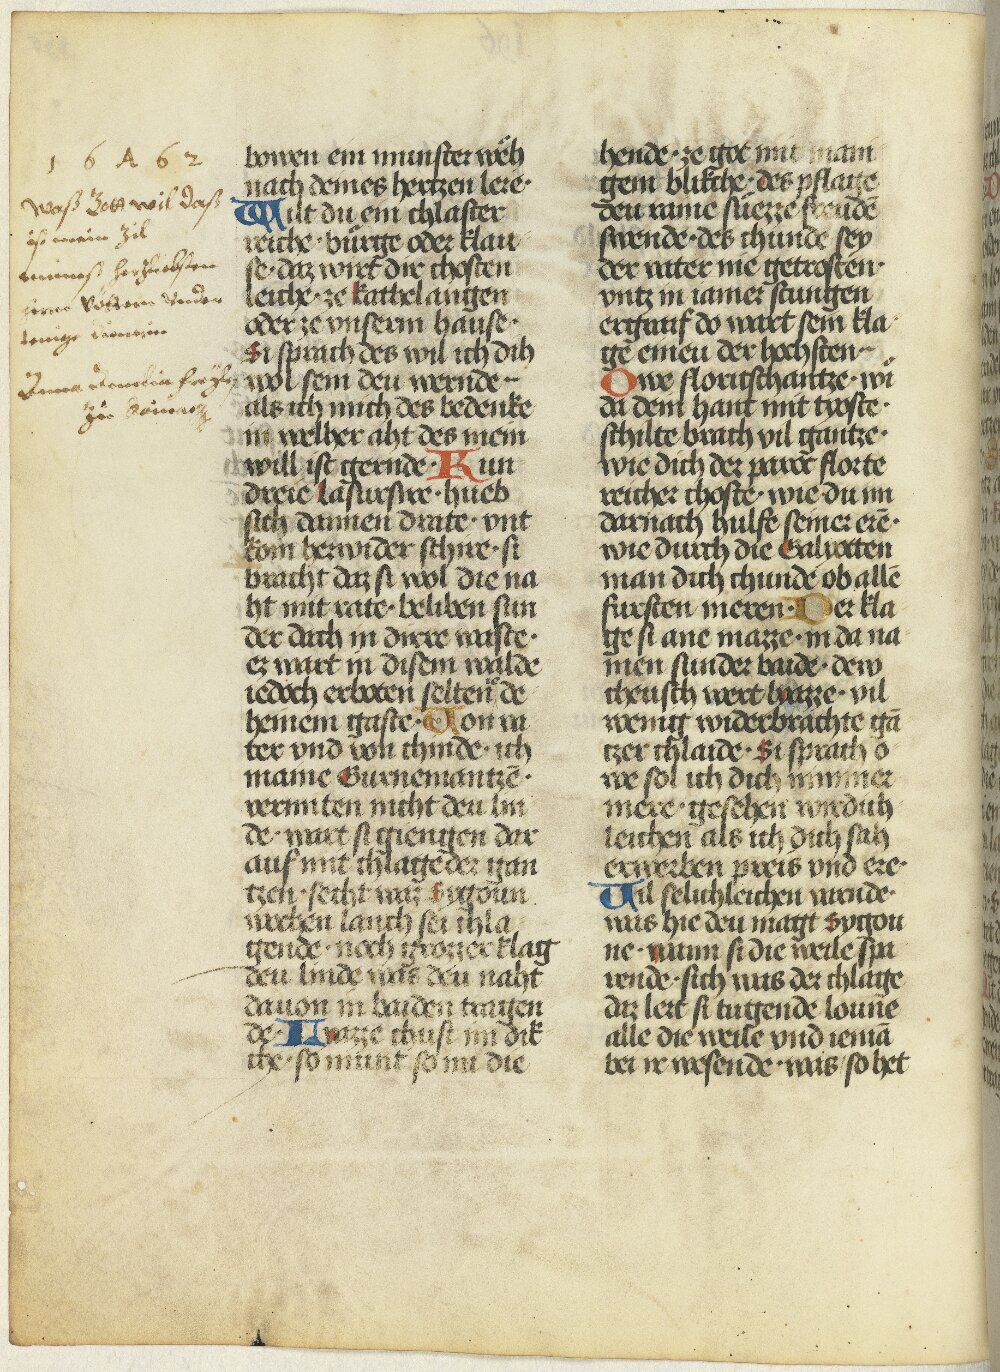 1 6 A 6 2
waß Gott wil daß
ist mein Zil
bowen ein munster wëh
nach deines hertzen lere·
Wilt du ein chlaster
reiche· bürge oder klau
se· daz wirt dir chosten
leiche· ze kathelangen
oder ze vnserm hause·
Si sprach des wil ich dih
wol sein deu wernde·
als ich mich des bedenke
in welher aht des mein
will ist gernde· Kun
dreie lasursire· hueb
sich dannen drate· vnt
kom herwider schire· si
bracht daz si wol die na
ht mit rate· beliben sun
der dach in dirre wuste·
ez wart in disem walde
iedoch erboten selten de
heinem gaste· Von va
ter vnd von chinde· ich
maine Gurnemantzē·
vermiten nicht deu lin
de· wart si giengen dar
auf mit chlage der gan
tzen· secht waz Sygoun
wochen lanch sei chla
gende· noch grozzer klag
deu linde was deu naht
dauon in baiden tragen
de· Umazze chust im dik
che· so munt so im die
hende· ze got mit mani
gem blikche· des pflatze
deu raine suezze freudē
swende· des chunde sey
der vater nie getrosten·
vntz in iamer stungen
ergraif do wart sein kla
gē eineu der hochsten·
Owe floritschantze· wi
da dem hant mit tyoste·
schilte brach vil gantze·
wie dich der paroc florte
reicher choste· wie du im
darnach hulfe seiner erē·
wie durch die Galyotten
man dich chunde ob allē
fursten meren· Der kla
ge si ane mazze· in da na
men sunder baide· dew
cheusch wert lyazze· vil
wenig widerbrachte gā
tzer chlaide· Si sprach o
we sol ich dich nimmer
mere· gesehen wirduh
leichen als ich dich sah
erwerben preis vnd ere·
Vil selichleichen wende·
was hie deu magt Sygou
ne· wann si die weile spa
rende· sich was der chlage
daz lert si tugende loune
alle die weile vnd iemā
bei ir wesende· was so het